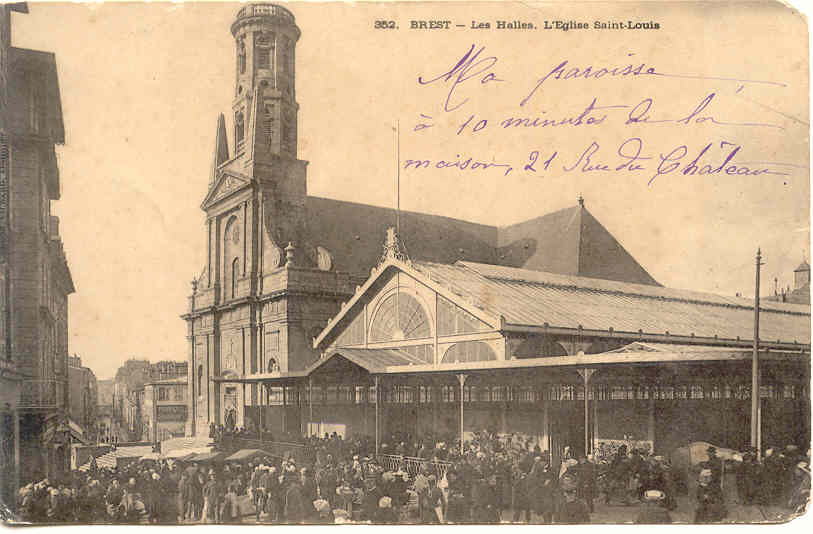 352. BREST – Les Halles. L'Eglise Saint-Louis
Ma paroisse
à 10 minutes de la
maison, 21 Rue du Château